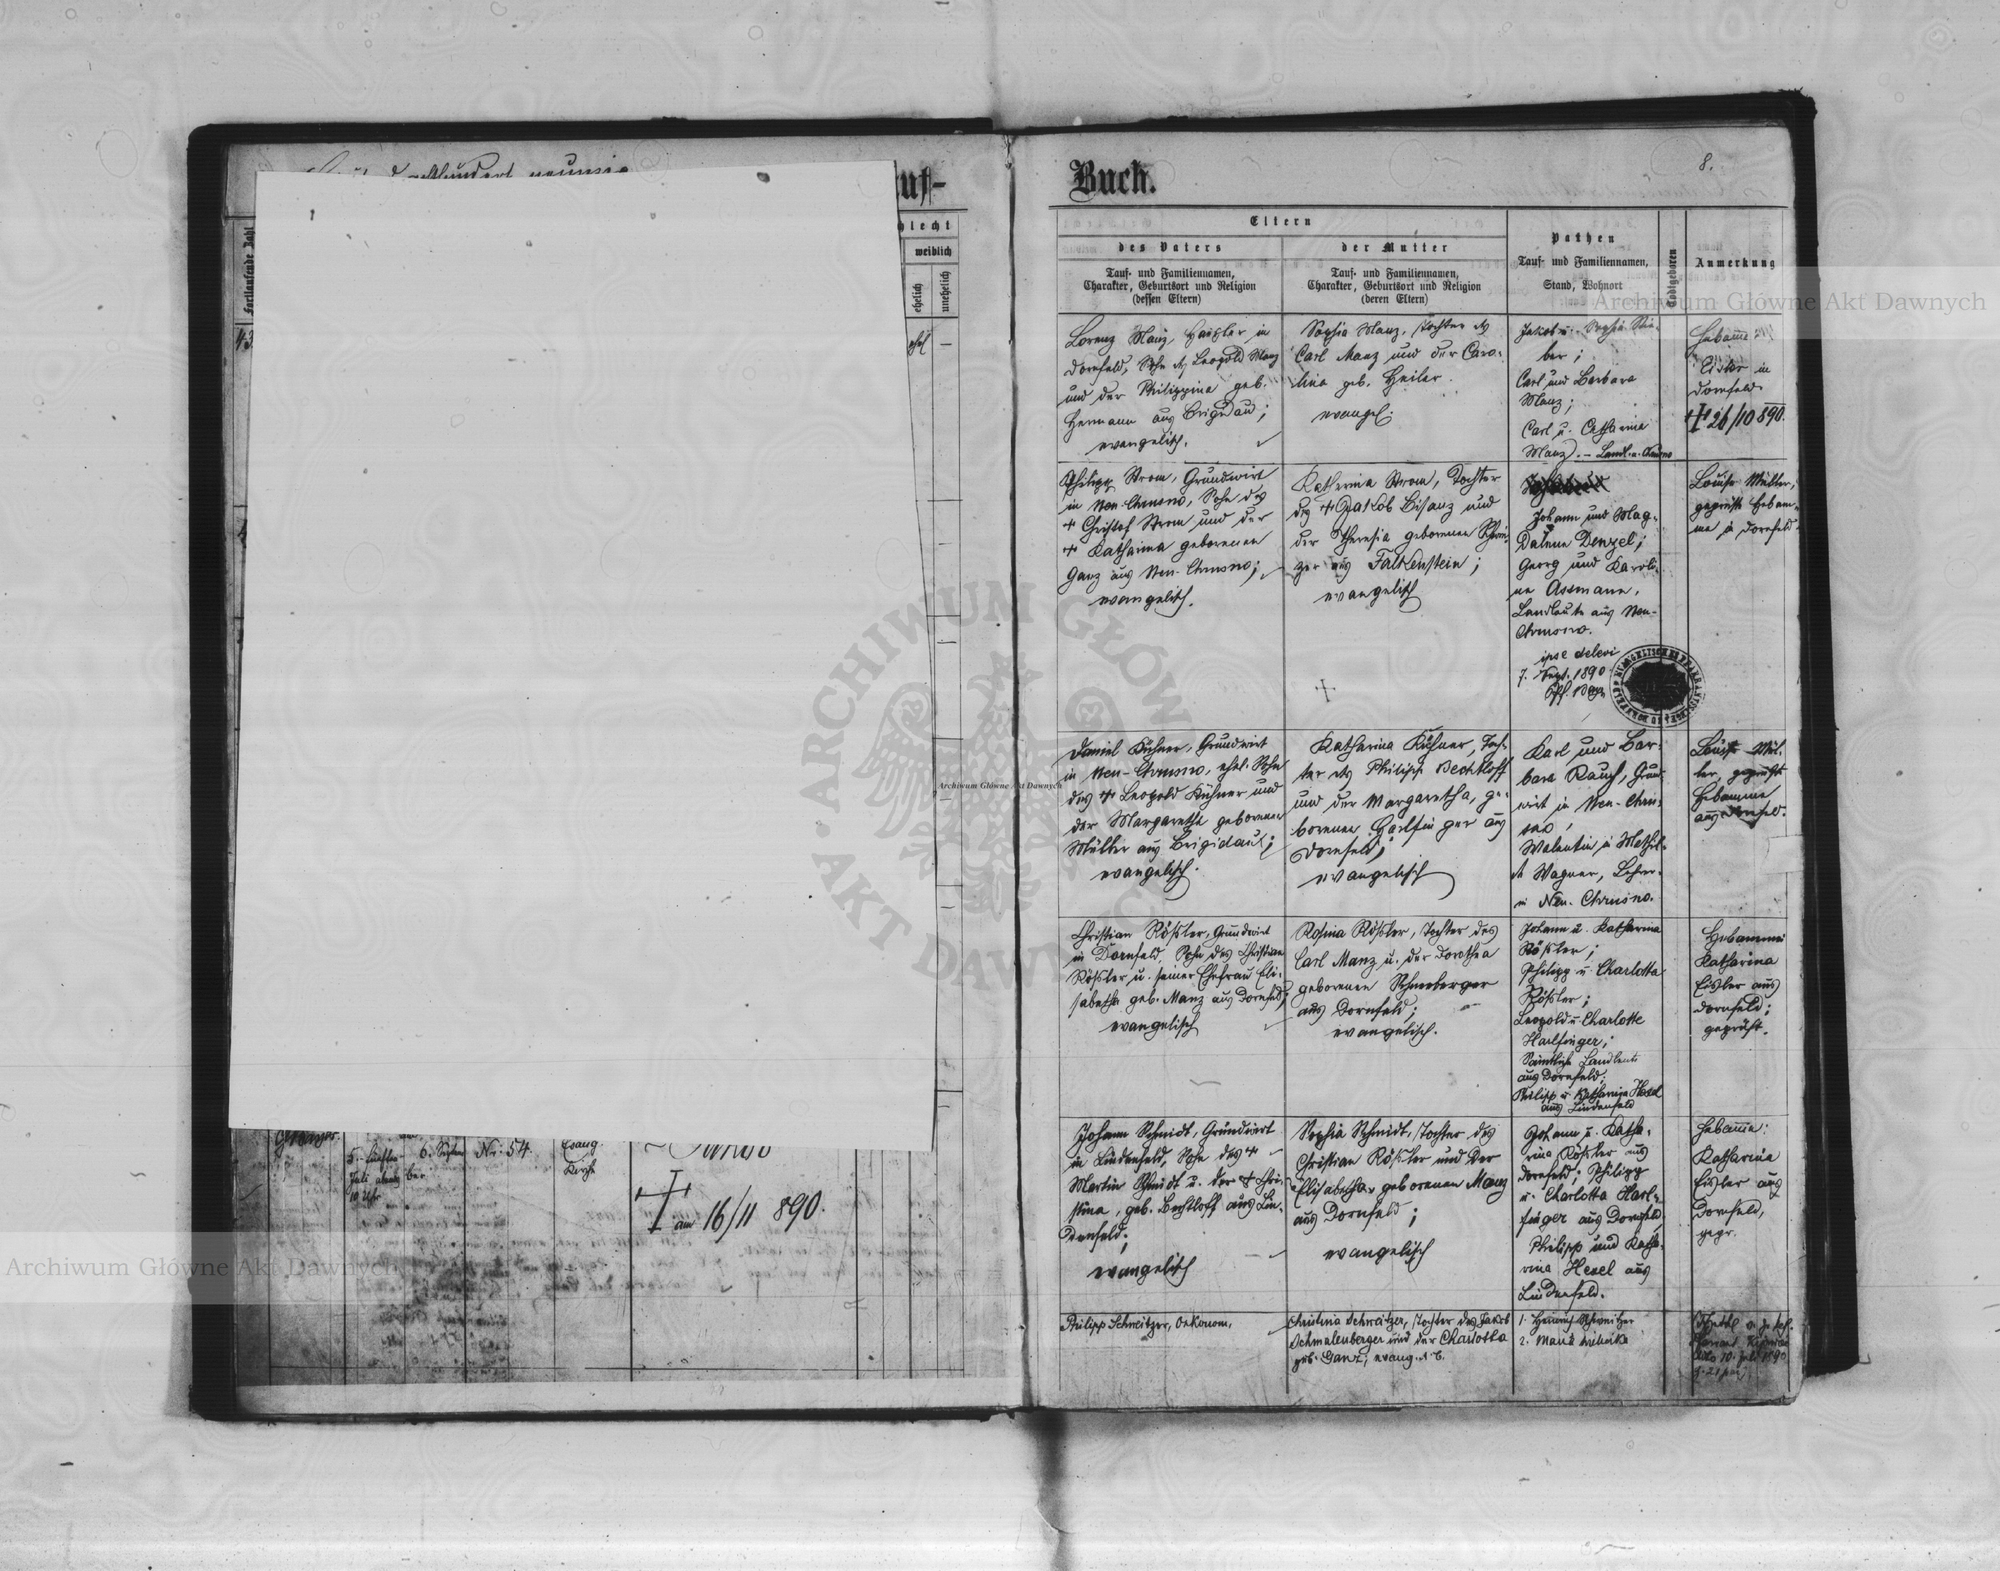 achthundert neunzig
Buch.
8.
Fortlaufende Zahl
weiblich
ehelich
unehelich
43
ehel
—
Eltern
des Vaters
der Mutter
Tauf- und Familiennamen,
Charakter, Geburtsort und Religion
(dessen Eltern)
Tauf- und Familiennamen,
Charakter, Geburtsort und Religion
(deren Eltern)
Pathen
Tauf- und Familiennamen,
Stand, Wohnort
Todtgeboren
Anmerkung
Lorenz Manz, in
Dornfeld, Sohn des Leopold Manz
und der Philippina geb.
Hermann aus Brigidau;
evangelisch.
Sophia Manz, Tochter des
Carl Manz und der Caro-
lina geb. Heiler.
evangel.
Jakob u. Sophia
ber;
Carl und Barbara
Manz;
Carl u. Catharina
Manz. –
Hebamme
Eisler in
Dornfeld.
26/10 890.
Philipp Strom, Grundwirt
in Neu-Chrusno, Sohn des
† Christof Strom und der
† Katharina geborenen
Ganz aus Neu-Chrusno;
evangelisch.
Katharina Strom, Tochter
des † Jakob Bisanz und
der Theresia geborenen
aus Falkenstein;
evangelisch
Johann und Mag-
dalena Denzel;
Georg und Karoli-
ne Assmann,
Landleute aus Neu-
Chrusno.
ipse delevi
7. Sept. 1890
Louise Müller,
geprüfte Hebam-
me in Dornfeld
Daniel Kühner, Grundwirt
in Neu-Chrusno, ehel. Sohn
des † Leopold Kühner und
der Margaretha geborenen
Müller aus Brigidau;
evangelisch.
Katharina Kühner, Toch-
ter des Philipp Bechtloff
und der Margaretha, ge-
borenen Harlfinger aus
Dornfeld;
evangelisch
Karl und Bar-
bara Rauch, Grund-
wirt in Neu-Chrus-
no;
Valentin u. Mathil-
de Wagner, Lehrer
in Neu-Chrusno.
Louise Mül-
ler, geprüfte
Hebamme
aus Dornfeld.
Christian Rößler, Grundwirt
in Dornfeld, Sohn des Christian
Rößler u. seiner Ehefrau Eli-
sabetha geb. Manz aus Dornfeld;
evangelisch
Rosina Rößler, Tochter des
Carl Manz u. der Dorothea
geborenen Schneeberger
aus Dornfeld;
evangelisch.
Johann u. Katharina
Rößler;
Philipp u. Charlotta
Rößler;
Leopold u. Charlotte
Harlfinger;
Sämtliche Landleute
aus Dornfeld;
Philipp u. Katharina Hexel
aus Lindenfeld
Hebamme
Katharina
Eisler aus
Dornfeld;
geprüft.
Johann Schmidt, Grundwirt
in Lindenfeld, Sohn des †
Martin Schmidt u. der † Chri-
stina, geb. Bechtloff aus Lin-
denfeld;
evangelisch
Sophia Schmidt, Tochter des
Christian Rößler und der
Elisabetha, geborenen Manz
aus Dornfeld;
evangelisch
Johann u. Katha-
rina Rößler aus
Dornfeld; Philipp
u. Charlotta Harl-
finger aus Dornfeld,
Philipp und Katha-
rina Hexel aus
Lindenfeld.
Hebamme:
Katharina
Eisler aus
Dornfeld,
gepr.
Philipp Schweitzer, Oekonom,
Christina Schweitzer, Tochter des Jakob
Schmalenberger und der Charlotta
geb. Ganz; evang. A. C.
1. Heinrich Schweitzer
2.
10. Juli 1890
5. fünften
Juli abends
10 Uhr
6.
Nr. 54.
Evang.
Kirche
am 16/11 890.
ARCHIWUM GŁÓWNE AKT DAWNYCH
Archiwum Główne Akt Dawnych
Archiwum Główne Akt Dawnych
Archiwum Główne Akt Dawnych